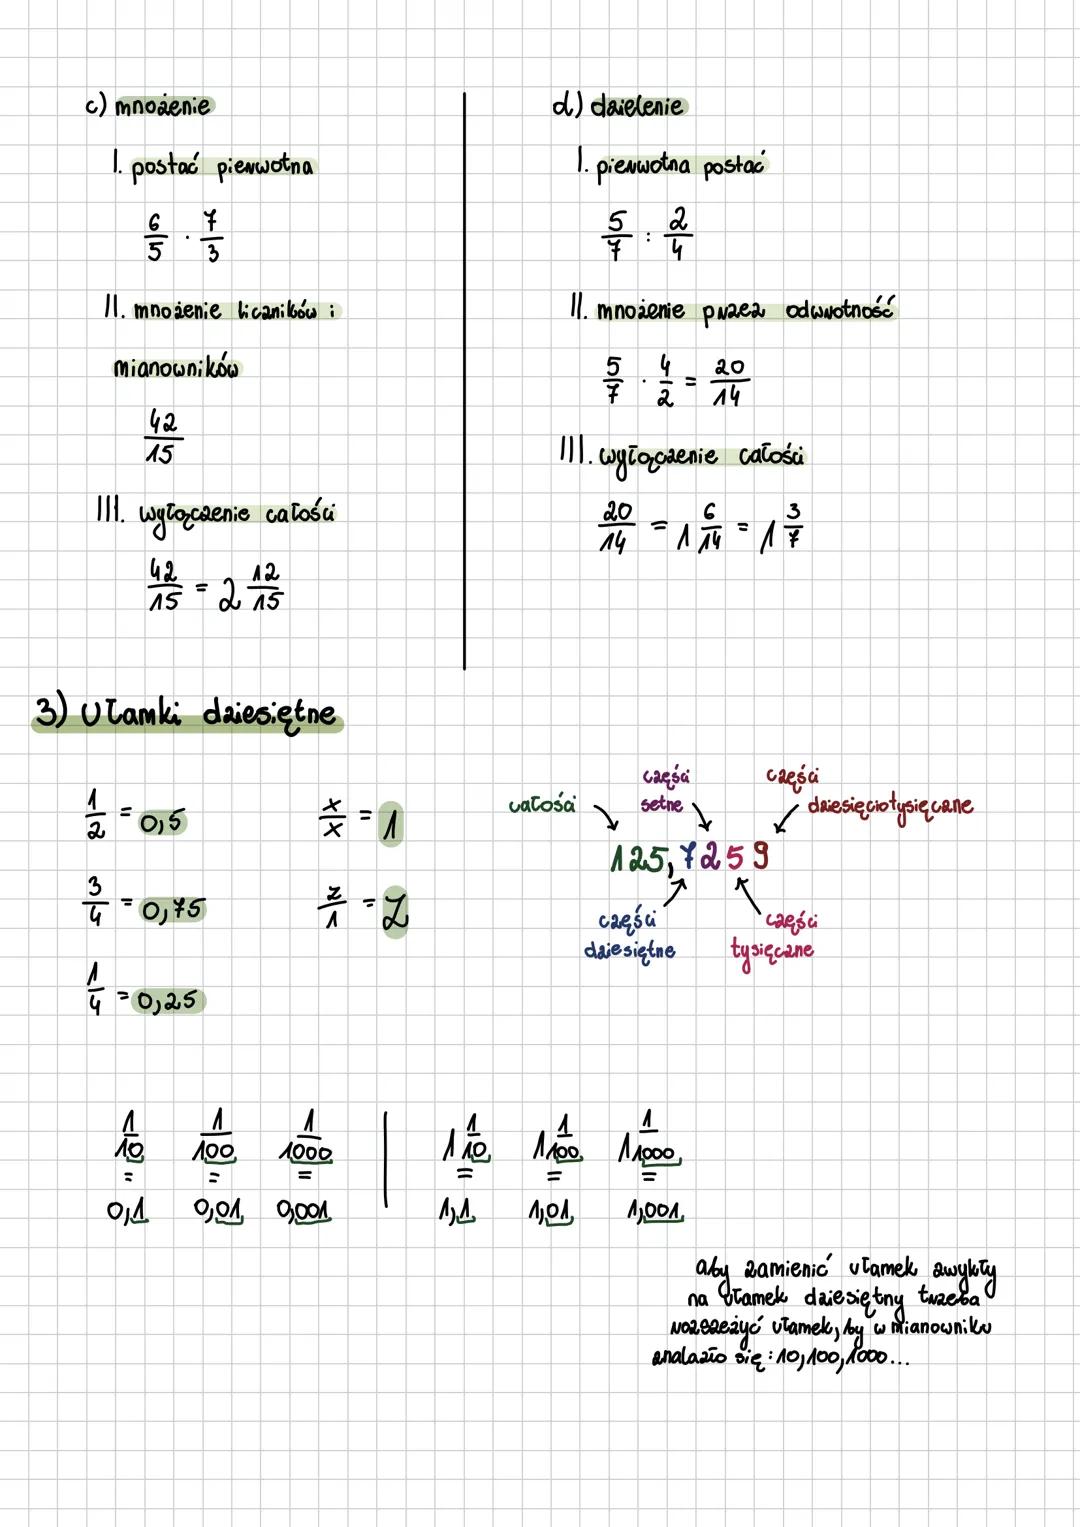 c) mnożenie
I. postać pierwotna
6/5 · 7/3
II. mnożenie liczników i
mianowników
42/15
III. wyłączenie całości
42/15 = 2 12/15
d) dzielenie
I. pierwotna postać
5/7 : 2/4
II. mnożenie przez odwrotność
5/7 · 4/2 = 20/14
III. wyłączenie całości
20/14 = 1 6/14 = 1 3/7
3) Ułamki dziesiętne
1/2 = 0,5
x/x = 1
3/4 = 0,75
z/1 = z
1/4 = 0,25
całości
części
setne
części
dziesięciotysięczne
125,7259
części
dziesiętne
części
tysięczne
1/10 1/100 1/1000
= = =
0,1 0,01 0,001
1 1/10 1 1/100 1 1/1000
= = =
1,1 1,01 1,001
aby zamienić ułamek zwykły
na ułamek dziesiętny trzeba
rozszeżyć ułamek, by w mianowniku
znalazło się: 10, 100, 1000...